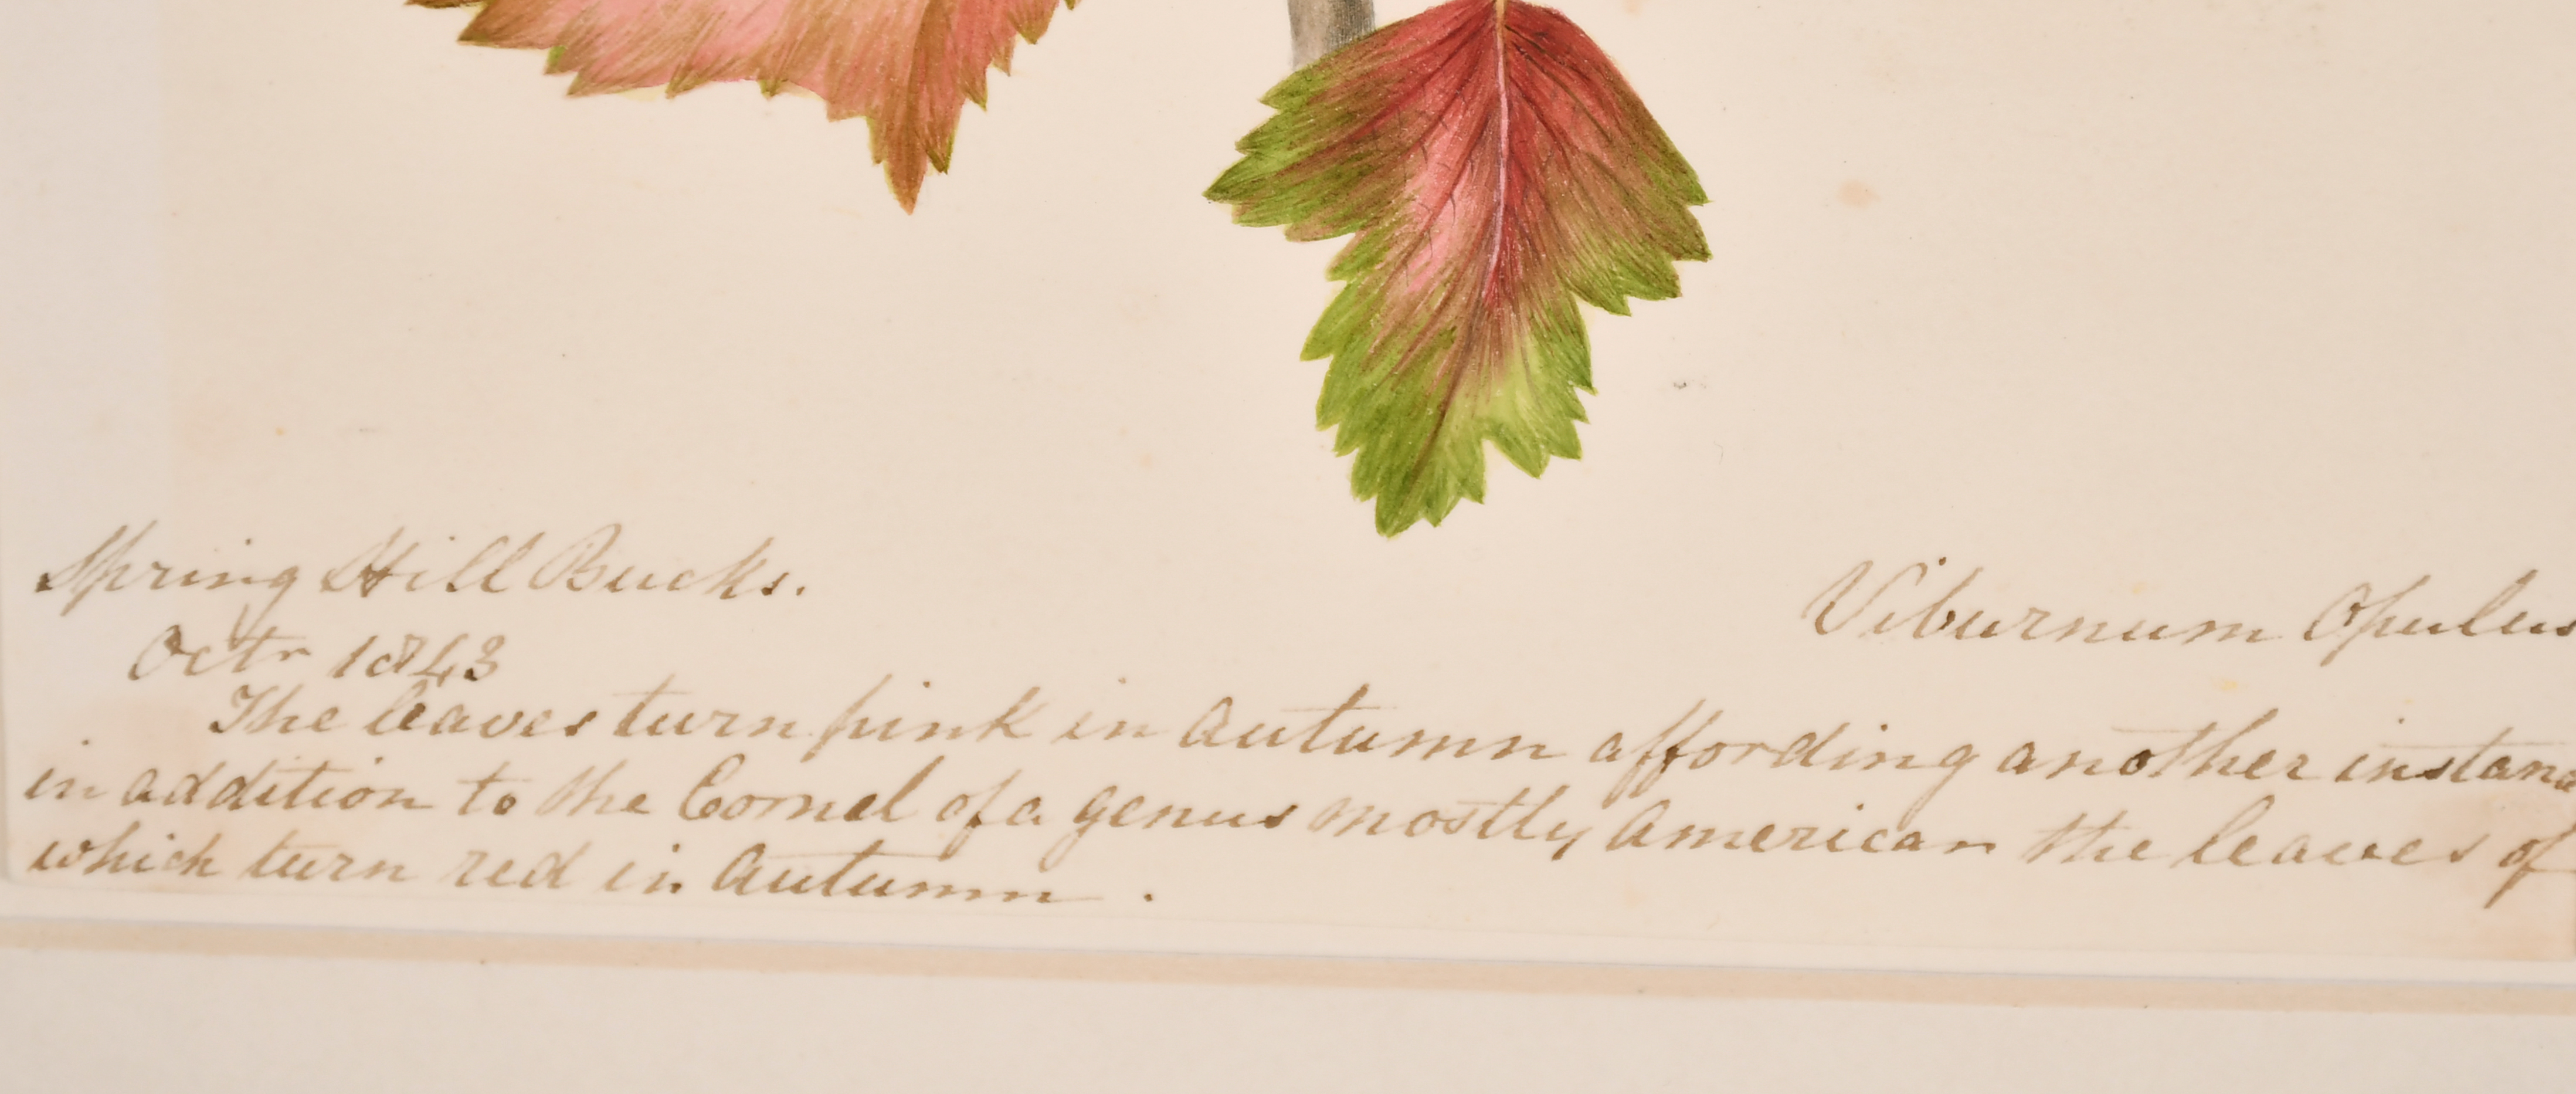 Spring Hill Bucks.
Viburnum Opulus
Octr 1843
The leaves turn pink in Autumn affording another instanc
in addition to the Cornel of a genus mostly American the leaves of
which turn red in Autumn .